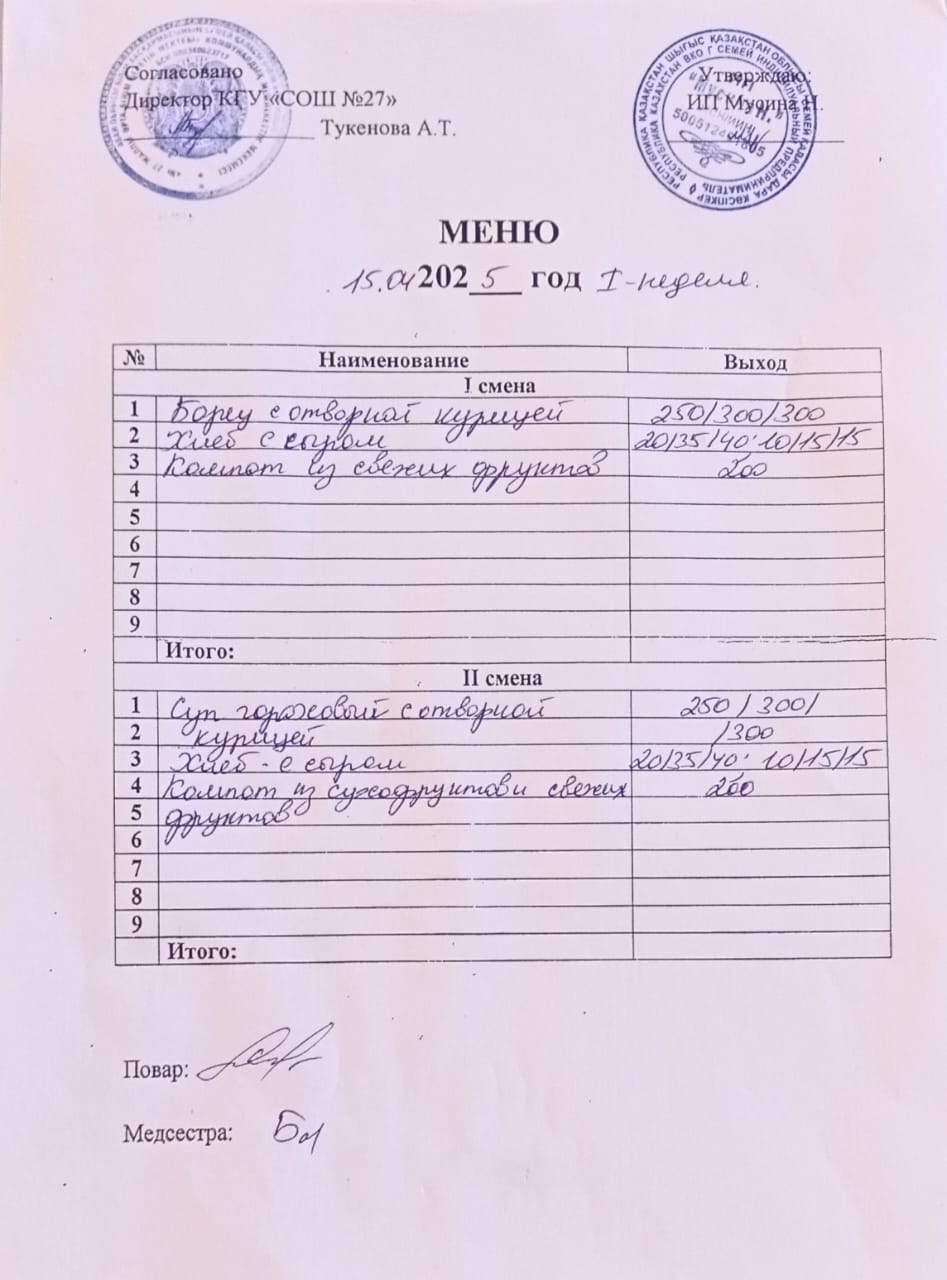 Согласовано
Директор КГУ «СОШ №27»
Тукенова А.Т.
Утверждаю:
ИП Мусина Н.
РЕСПУБЛИКА ҚАЗАҚСТАН ШЫҒЫС ҚАЗАҚСТАН ОБЛЫСЫ СЕМЕЙ ҚАЛАСЫ ДАРА КӘСІПКЕР
РЕСПУБЛИКА КАЗАХСТАН ВКО Г СЕМЕЙ ИНДИВИДУАЛЬНЫЙ ПРЕДПРИНИМАТЕЛЬ
МЕНЮ
15.04 2025 год I-неделя.
№ Наименование Выход
I смена
1 Борщ с отворной курицей 250/300/300
2 Хлеб с сыром 20/35/40· 10/15/15
3 Компот из свежих фруктов 200
4
5
6
7
8
9
Итого:
II смена
1 Суп гороховый с отворной 250/300/
2 курицей /300
3 Хлеб - с сыром 20/35/40· 10/15/15
4 Компот из сухофруктов и свежих 200
5 фруктов
6
7
8
9
Итого:
Повар:
Медсестра: